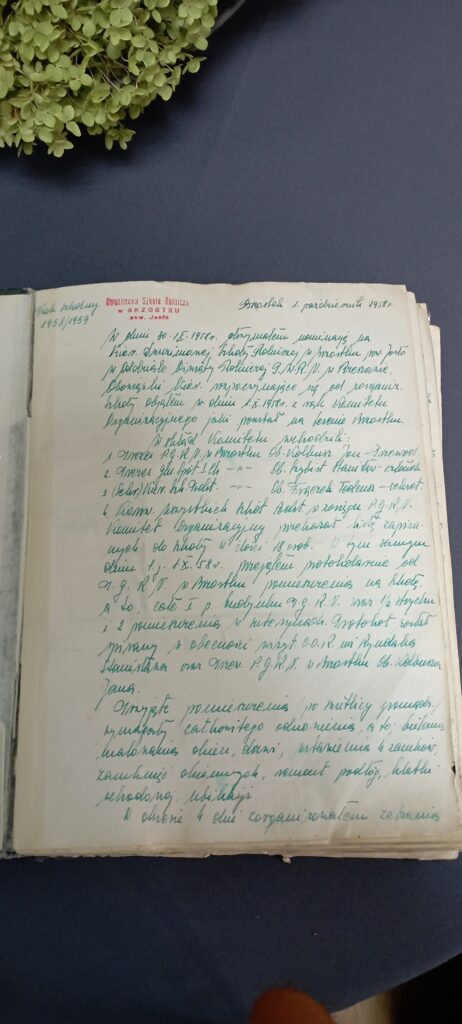 Rok szkolny
1958/1959
Dwuzimowa Szkoła Rolnicza
w BRZOSTKU
pow. Jasło
Brzostek 1. październik 1958 r.
W dniu 30-IX-1958 r. otrzymałem nominację na
Kier. Dwuzimowej Szkoły Rolniczej w Brzostku pow. Jasło
w Oddziale Oświaty Rolniczej P.W.R.N. w Rzeszowie.
Obowiązki Kier. rozpoczynające się od zorganiz.
szkoły objąłem w dniu 1.X.1958 r. z rąk Komitetu
Organizacyjnego jaki powstał na terenie Brzostku.
W skład Komitetu wchodzili:
1. Prezes P.G.R.N. w Brzostku Ob. Jan - Przewod.
2. Prezes Gm. Spół. S.Ch. -"- Ob. Stanisław - członek
3. Kier. Szk. Podst. -"- Ob. Tadeusz - sekret.
4. Kierow. wszystkich szkół Podst. w zasięgu P.G.R.N.
Komitet Organizacyjny przekazał listę zapisa-
nych do szkoły w ilości 18 osób. W tym samym
dniu t.j. 1.X.58 r. przejąłem protokolarnie od
P.G.R.N. w Brzostku pomieszczenia na szkołę
a to: całe I p. budynku P.G.R.N. oraz 1/2 strychu
i 2 pomieszczenia w suterynach. Protokół został
spisany w obecności
Stanisława oraz Przew. P.G.R.N. w Brzostku Ob.
Jana.
Przyjęte pomieszczenia po świetlicy gromadz.
wymagały całkowitego odnowienia, a to: bielenia
malowania okien, drzwi, wstawienia 4 zamków,
zamknięć okiennych, remont podłóg, klatki
schodowej, ubikacji.
W okresie 4 dni zorganizowałem zebrania